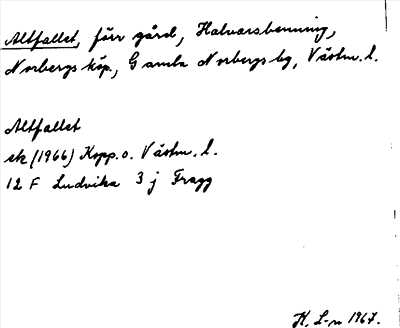 Altfallet, förr gård, Halvarsbenning,
Norbergs köp., Gamla Norbergs bg, Västm. l.
Altfallet
ek (1966) Kopp. o. Västm. l.
12 F Ludvika 3 j Fragg
K. L-n 1967.